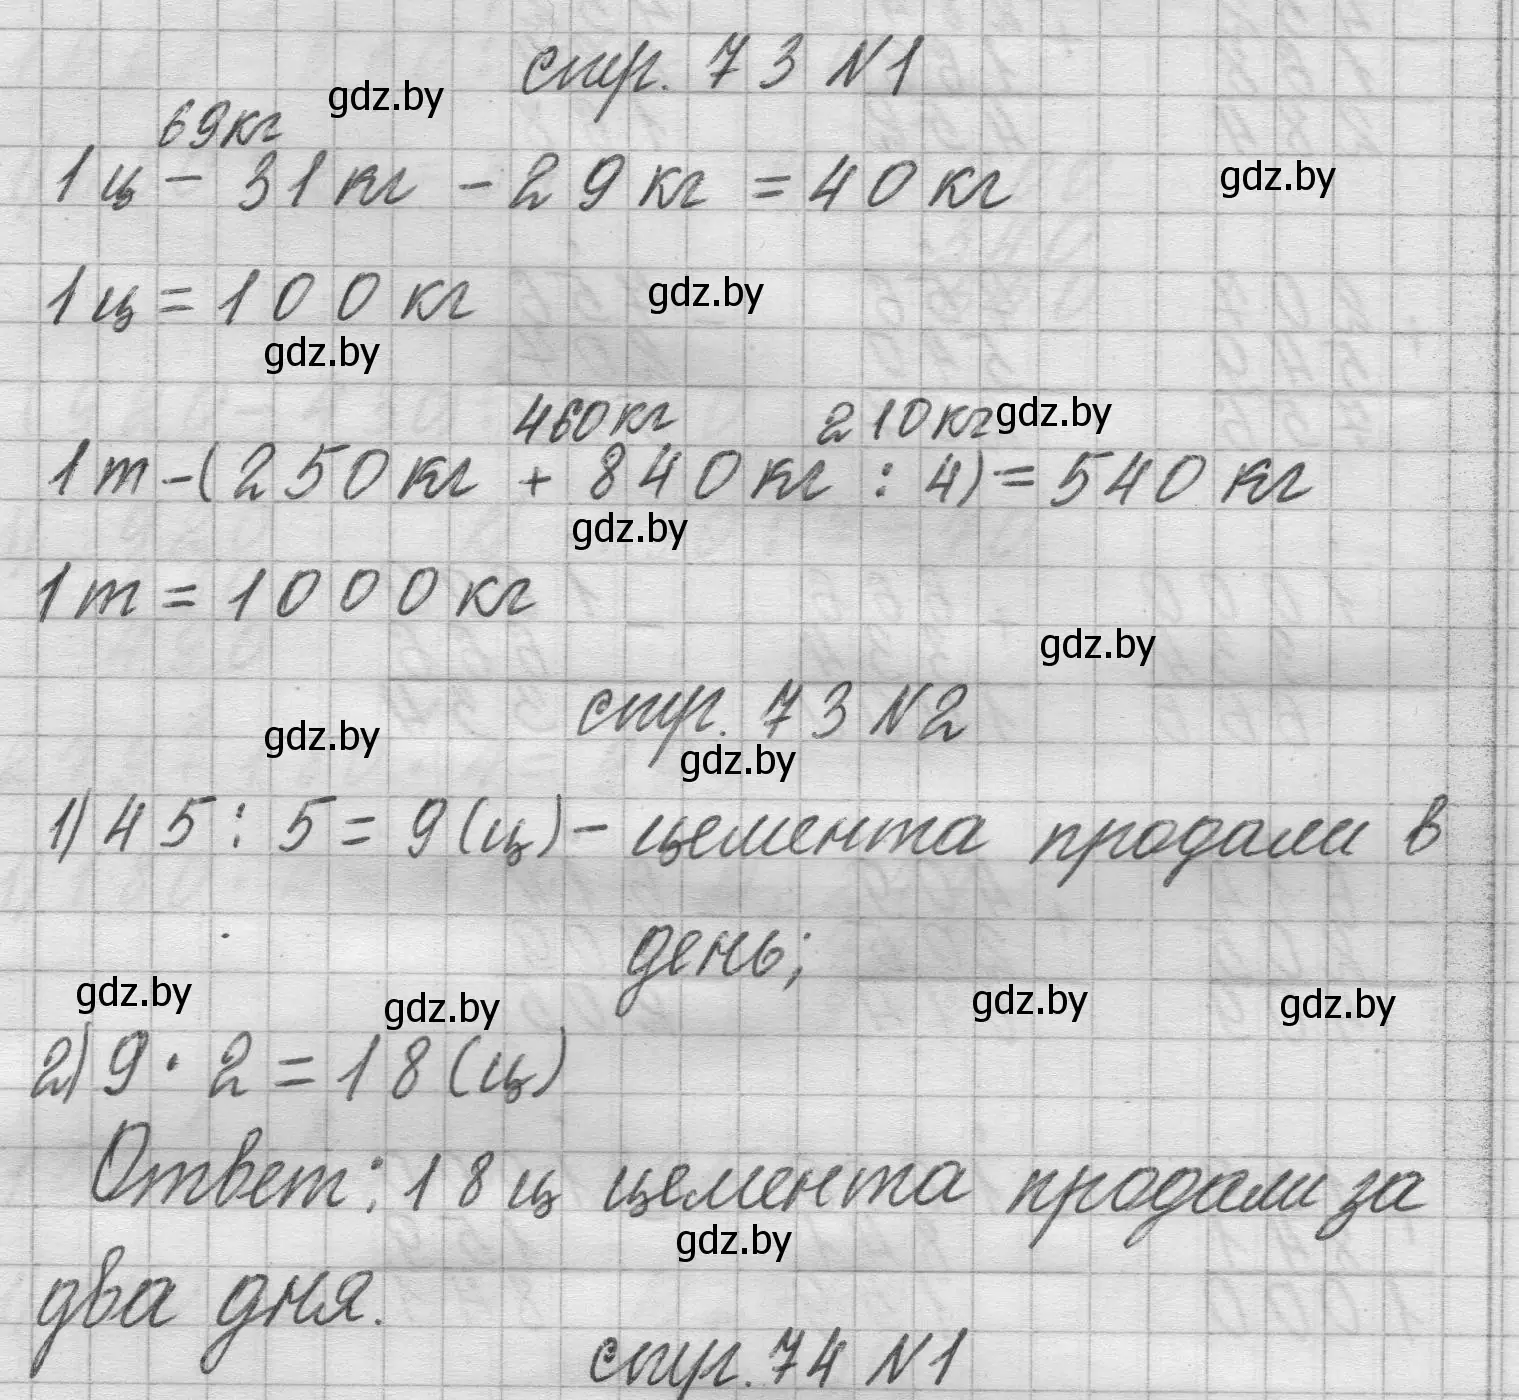 стр. 73 N1
gdz.by
69кг
1ц - 31кг - 29кг = 40кг
gdz.by
1ц = 100кг
gdz.by
gdz.by
460кг 210кг gdz.by
1т - (250кг + 840кг : 4) = 540кг
gdz.by
1т = 1000кг
gdz.by
стр. 73 N2
gdz.by
gdz.by
1) 45 : 5 = 9 (ц) - цемента продали в
день;
gdz.by gdz.by gdz.by gdz.by
2) 9 · 2 = 18 (ц)
Ответ: 18 ц цемента продали за
gdz.by
два дня.
стр. 74 N1